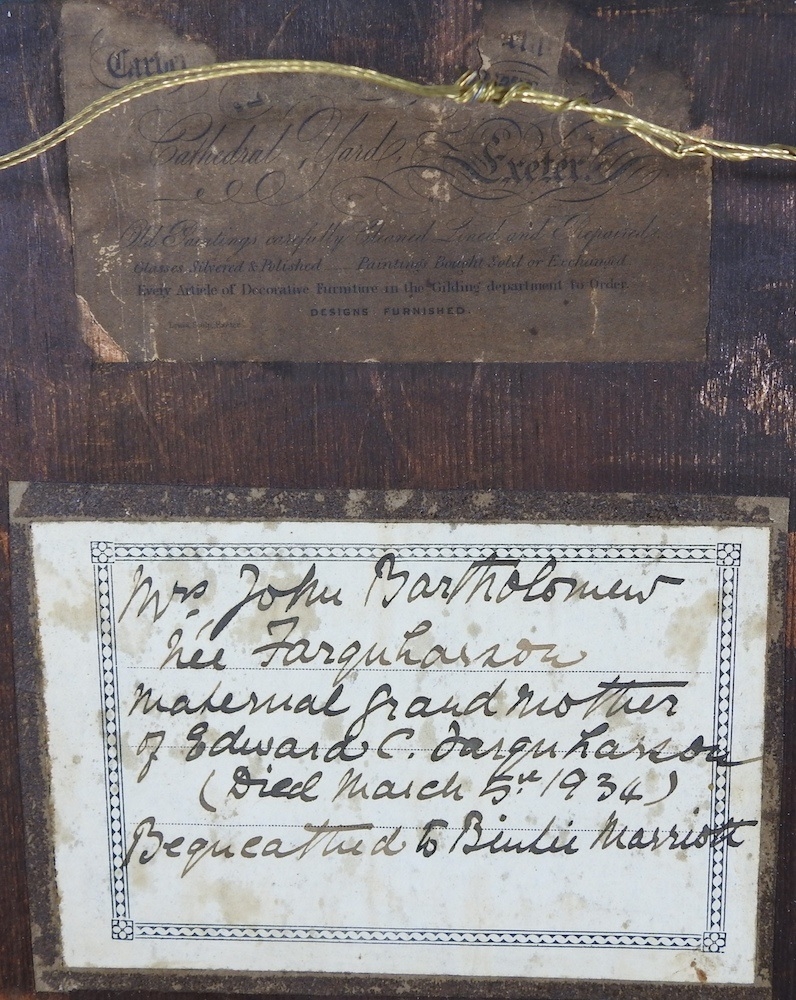 Cathedral Yard, Exeter.
Old Paintings carefully Cleaned Lined and Repaired.
Glasses Silvered & Polished Paintings Bought Sold or Exchanged
Every Article of Decorative Furniture in the Gilding department to Order.
DESIGNS FURNISHED.
Mrs John Bartholomew
née Farquharson
maternal grandmother
of Edward C. Farquharson
(Died March 5th 1934)
Bequeathed to Marriott